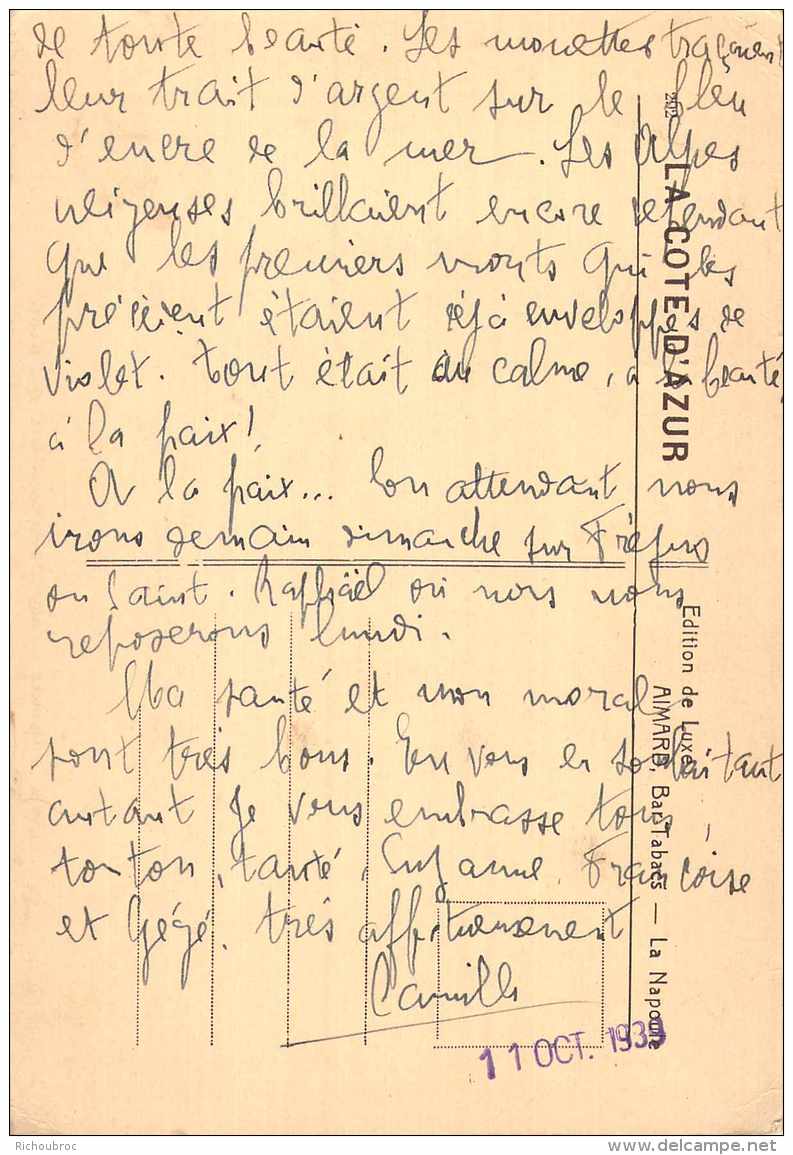 de toute beauté. Les mouettes traçaient
leur trait d'argent sur le bleu
d'encre de la mer. Les Alpes
neigeuses brillaient encore cependant
que les premiers monts qui les
précèdent étaient déjà enveloppés de
violet. Tout était au calme, à la beauté,
à la paix!
A la paix... En attendant nous
irons demain dimanche sur Fréjus
ou Saint-Raphaël où nous nous
reposerons lundi.
Ma santé et mon moral
sont très bons. En vous en souhaitant
autant je vous embrasse tous,
tonton, tante, Suzanne, Françoise
et Gégé. très affectueusement
Camille
202 LA COTE D'AZUR
Edition de Luxe
AIMARD, Bar Tabacs — La Napoule
11 OCT. 1939
Richoubroc
www.delcampe.net